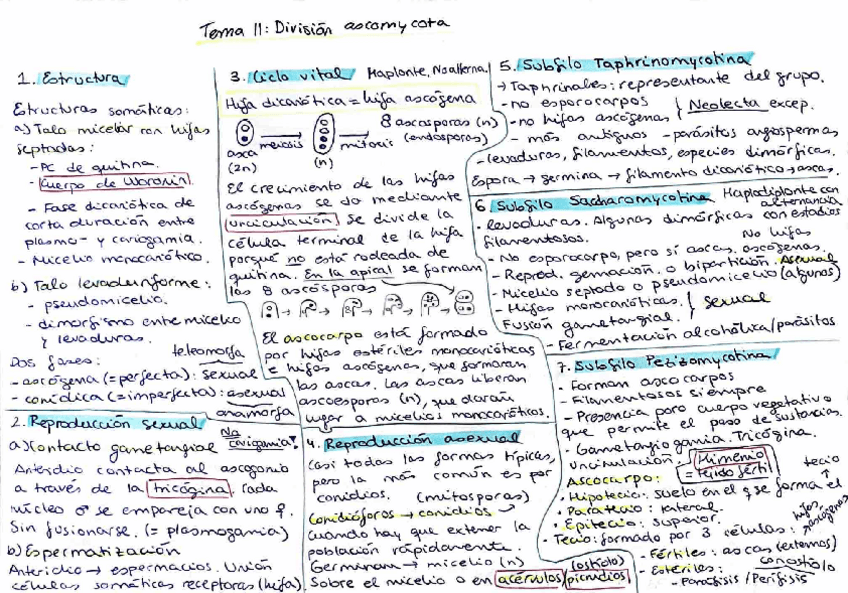 Tema 11: División ascomycota
1. Estructura
Estructuras somáticas:
a) Talo micelar con hifas
septadas:
- PC de quitina.
- Cuerpo de Woronin.
- Fase dicariótica de
corta duración entre
plasmo- y cariogamia.
- Micelio monocariótico.
b) Talo levaduriforme:
- pseudomicelio.
- dimorfismo entre micelio
y levaduras.
Dos fases:
teleomorfa
- ascógena (=perfecta): sexual
- conídica (=imperfecta): asexual
anamorfa
2. Reproducción sexual
a) Contacto gametangial
No cariogamia!
Anteridio contacta al ascogonio
a través de la tricógina. Cada
núcleo ♂ se empareja con uno ♀.
Sin fusionarse. (= plasmogamia)
b) Espermatización
Anteridio → espermacios. Unión
células somáticas receptoras (hifa)
3. Ciclo vital
Haplonte, No alterna.
Hifa dicariótica = hifa ascógena
8 ascosporas (n)
meiosis mitosis (endosporas)
asca
(2n) (n)
El crecimiento de las hifas
ascógenas se da mediante
uncinulación. Se divide la
célula terminal de la hifa
porque no está rodeada de
quitina. En la apical se forman
las 8 ascósporas
El ascocarpo está formado
por hifas estériles monocarióticas
e hifas ascógenas, que formaran
las ascas. Las ascas liberan
ascoesporas (n), que darán
lugar a micelios monocarióticos.
4. Reproducción asexual
Casi todas las formas típicas,
pero la más común es por
conidios. (mitosporas)
Conidióforos → conidios
cuando hay que extener la
población rápidamente.
Germinan → micelio (n)
(ostiolo)
Sobre el micelio o en acérvulos/picnidios
5. Subfilo Taphrinomycotina
→ Taphrinales: representante del grupo.
- no esporocarpos
- no hifas ascógenas } Neolecta excep.
- más antiguos - parásitos angiospermas
- levaduras, filamentos, especies dimórficas.
Espora → germina → filamento dicariótico → ascas.
6. Subfilo Sacharomycotina
Haplodiplonte con
alternancia
- levaduras. Algunas dimórficas con estadios
filamentosos.
No hifas
- No esporocarpo, pero sí ascas. ascógenas.
- Reprod. gemación o bipartición. Asexual
- Micelio septado o pseudomicelio (algunos)
- Hifas monocarióticas. } sexual
Fusión gametangial.
- Fermentación alcohólica/parásitos
7. Subfilo Pezizomycotina
- Forman ascocarpos
- Filamentosos siempre
- Presencia poro cuerpo vegetativo
que permite el paso de sustancias.
- Gametangiogamia. Tricógina.
uncinulación.
Himenio
= tejido fértil
tecio
Ascocarpo:
- Hipotecio: suelo en el q se forma el
- Paratecio: lateral.
- Epitecio: superior.
- Tecio: formado por 3 células:
hifas ascógenas
- Fértiles: ascas (externos)
- Estériles:
- Parafisis / Perifisis